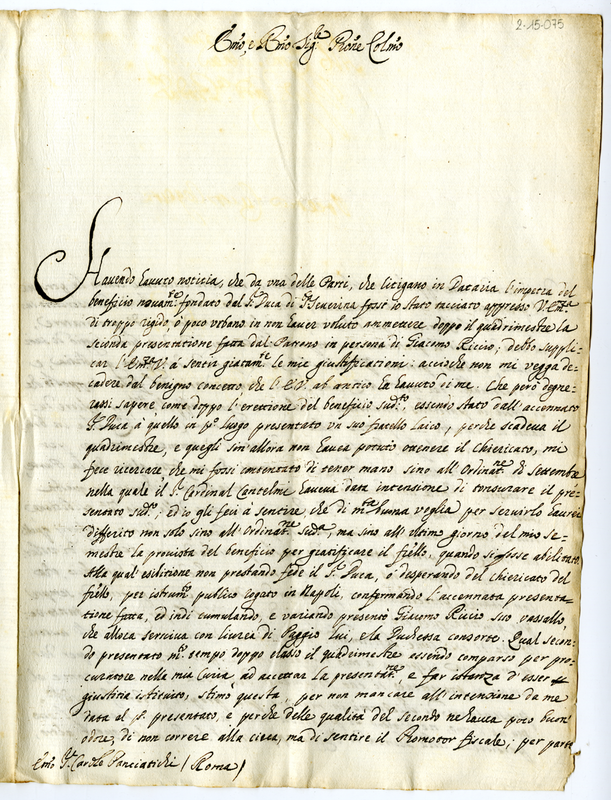 2-15-075
Emo, e Rmo Sig.re Prōne Colmo
Havendo havuto notitia, che da una delle Parti, che litigano in Dataria l'impetra del
beneficio novam.te fondato dal S.r Duca di S. Severina fossi io stato tacciato appresso V. Em.za
di troppo rigido, ò poco urbano in non haver voluto ammettere doppo il quadrimestre la
seconda presentatione fatta dal Patrono in persona di Giacomo Riccio; debbo suppli-
car l'Em.za V. à sentir le mie giustificationi: acciòche non mi vegga de-
cadere dal benigno concetto che l'E.V. ab antico hà havuto di me. Che però degne-
rassi sapere come doppo l'erettione del beneficio sud.to, essendo stato dall'accennato
S.r Duca à quello in p.o luogo presentato un suo fratello laico, perche scadeva il
quadrimestre, e quegli sin'allora non haveva potuto ottenere il chiericato, mi
fece ricercare che mi fossi contentato di tener mano sino all'Ordinat.ne di Settembre
nella quale il S.r Cardinal Cantelmi haveva data intensione di tonsurare il pre-
sentato sud.to; ed io gli feci à sentire che di m.ta buona voglia per servirlo haverei
differito non solo sino all'Ordinat.ne sud.a, ma sino all'ultimo giorno del mio se-
mestre la provista del beneficio per gratificare il frēllo, quando si fosse abilitato.
Alla qual'esibitione non prestando fede il S.r Duca, ò disperando del chiericato del
frēllo, per istrum.to publico rogato in Napoli, confermando l'accennata presenta-
tione fatta, ed indi cumulando, e variando presentò Giacomo Riccio suo vassallo,
che allora serviva con livrea di Paggio lui, e la Duchessa consorte. Qual secon-
do presentato m.to tempo doppo elasso il quadrimestre essendo comparso per pro-
curatore nella mia Curia, ad accettar la presentat.ne, e far istanza d'esser
giustitia istituito, stimo questa, per non mancare all'intensione da me
data al p.o presentato, e perche delle qualità del secondo ne haveva poco buon'
odore, di non correre alla cieca, ma di sentire il Promotor fiscale; per parte
Emo S.r Car.le Panciatichi (Roma)